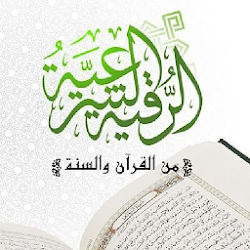 الرُّقية الشرعيَّة
من القرآن والسنة